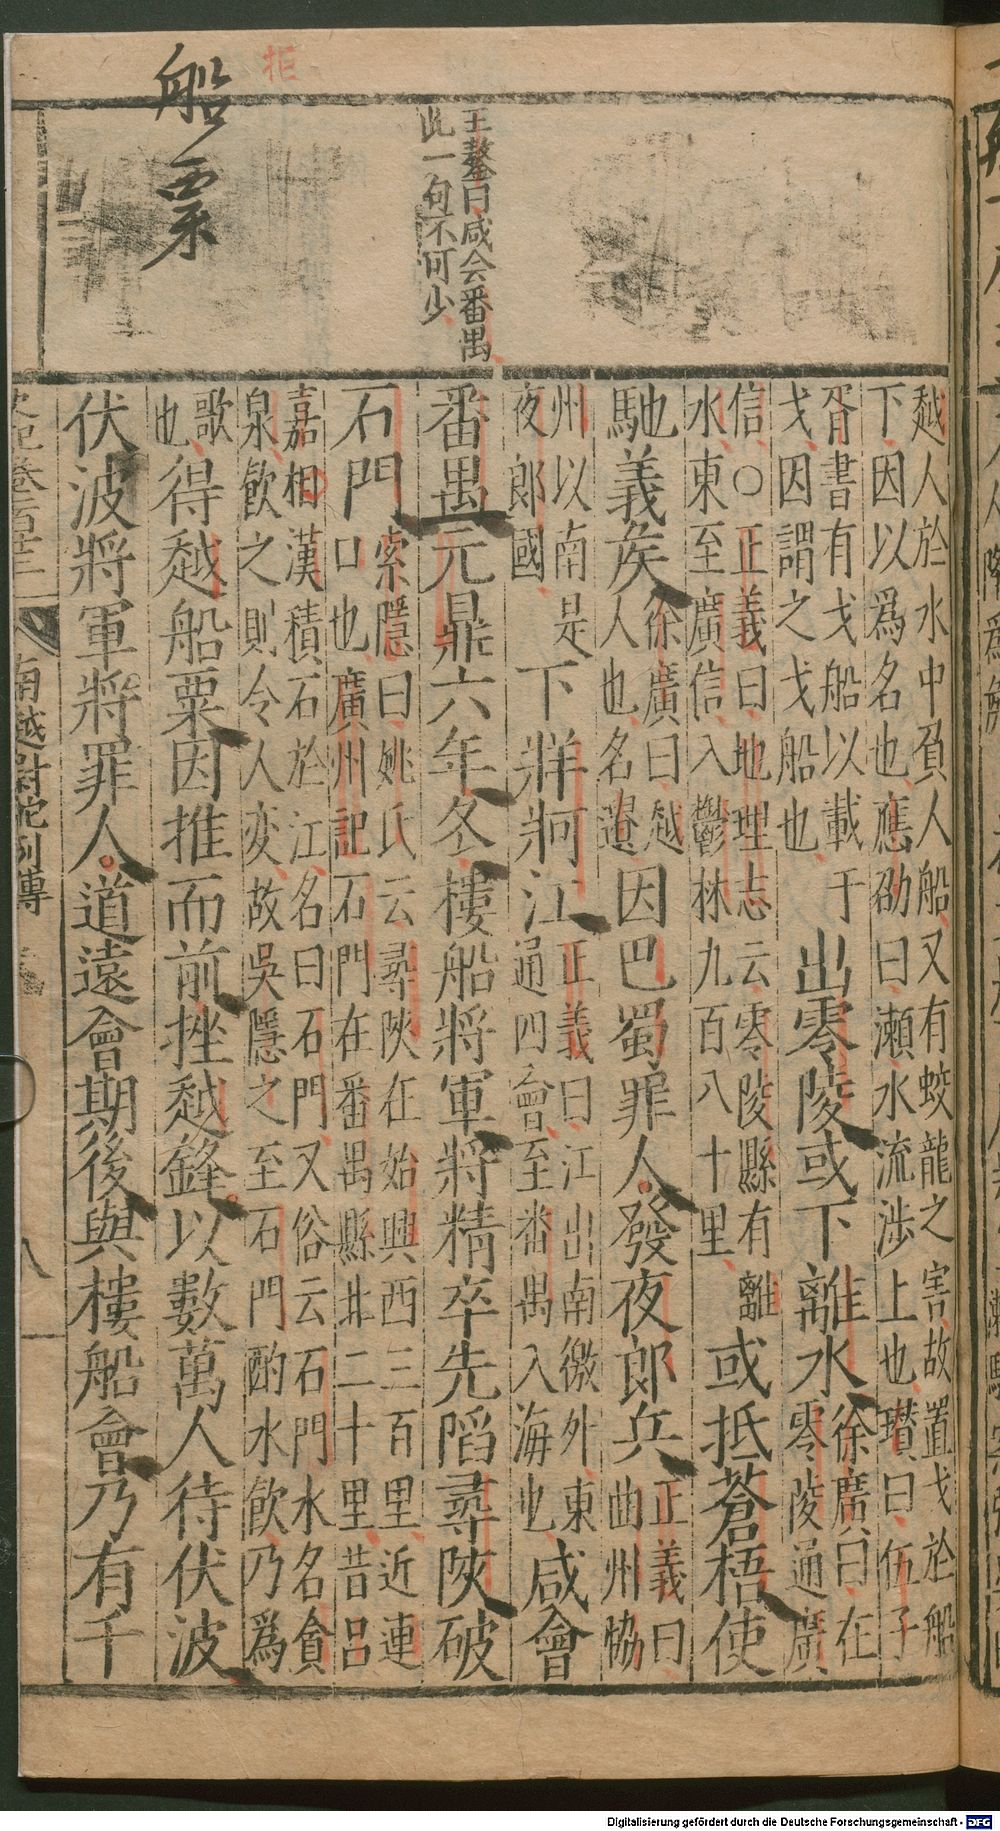 拒
船
粟
王鏊曰咸会番禺
此一句不可少
越人於水中負人船又有蛟龍之害故置戈於船
下因以爲名也應劭曰瀨水流涉上也瓚曰伍子
胥書有戈船以載干
戈因謂之戈船也
出零陵或下離水
徐廣曰在
零陵通廣
信○正義曰地理志云零陵縣有離
水東至廣信入鬱林九百八十里
或抵蒼梧使
馳義矦
徐廣曰越
人也名遺
因巴蜀罪人發夜郎兵
正義曰
曲州協
州以南是
夜郎國
下牂牁江
正義曰江出南徼外東
通四會至番禺入海也
咸會
番禺元鼎六年冬樓船將軍將精卒先陷尋陜破
石門
索隱曰姚氏云尋陜在始興西三百里近連
口也廣州記石門在番禺縣北二十里昔呂
嘉相漢積石於江名曰石門又俗云石門水名貪
泉飲之則令人変故吳隱之至石門酌水飲乃爲
歌
也
得越船粟因推而前挫越鋒以數萬人待伏波
伏波將軍將罪人道遠會期後與樓船會乃有千
史記卷百十三
南越尉佗列傳
八
Digitalisierung gefördert durch die Deutsche Forschungsgemeinschaft - DFG